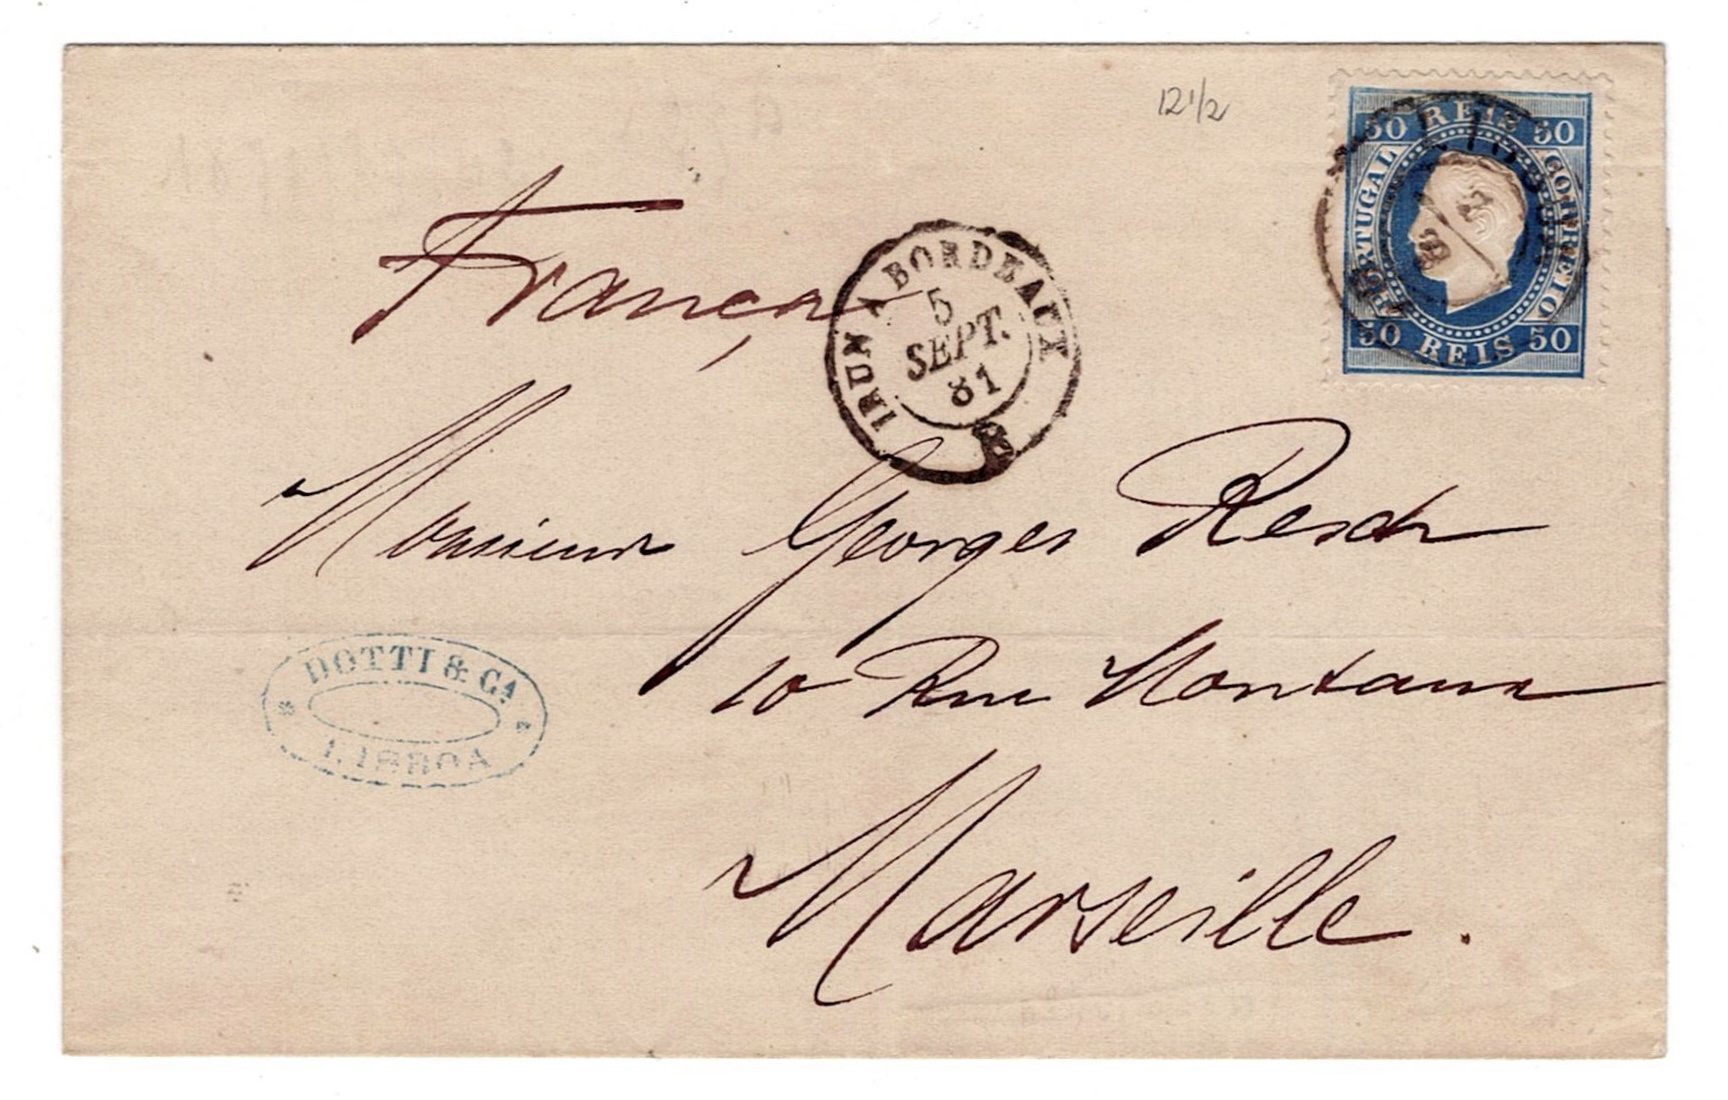 12 1/2
50 REIS 50
PORTUGAL
CORREIO
50 REIS 50
França
IRUN A BORDEAUX
5
SEPT.
81
Monsieur Georges Resch
10 Rue Montaux
DOTTI & CA.
LISBOA
Marseille.